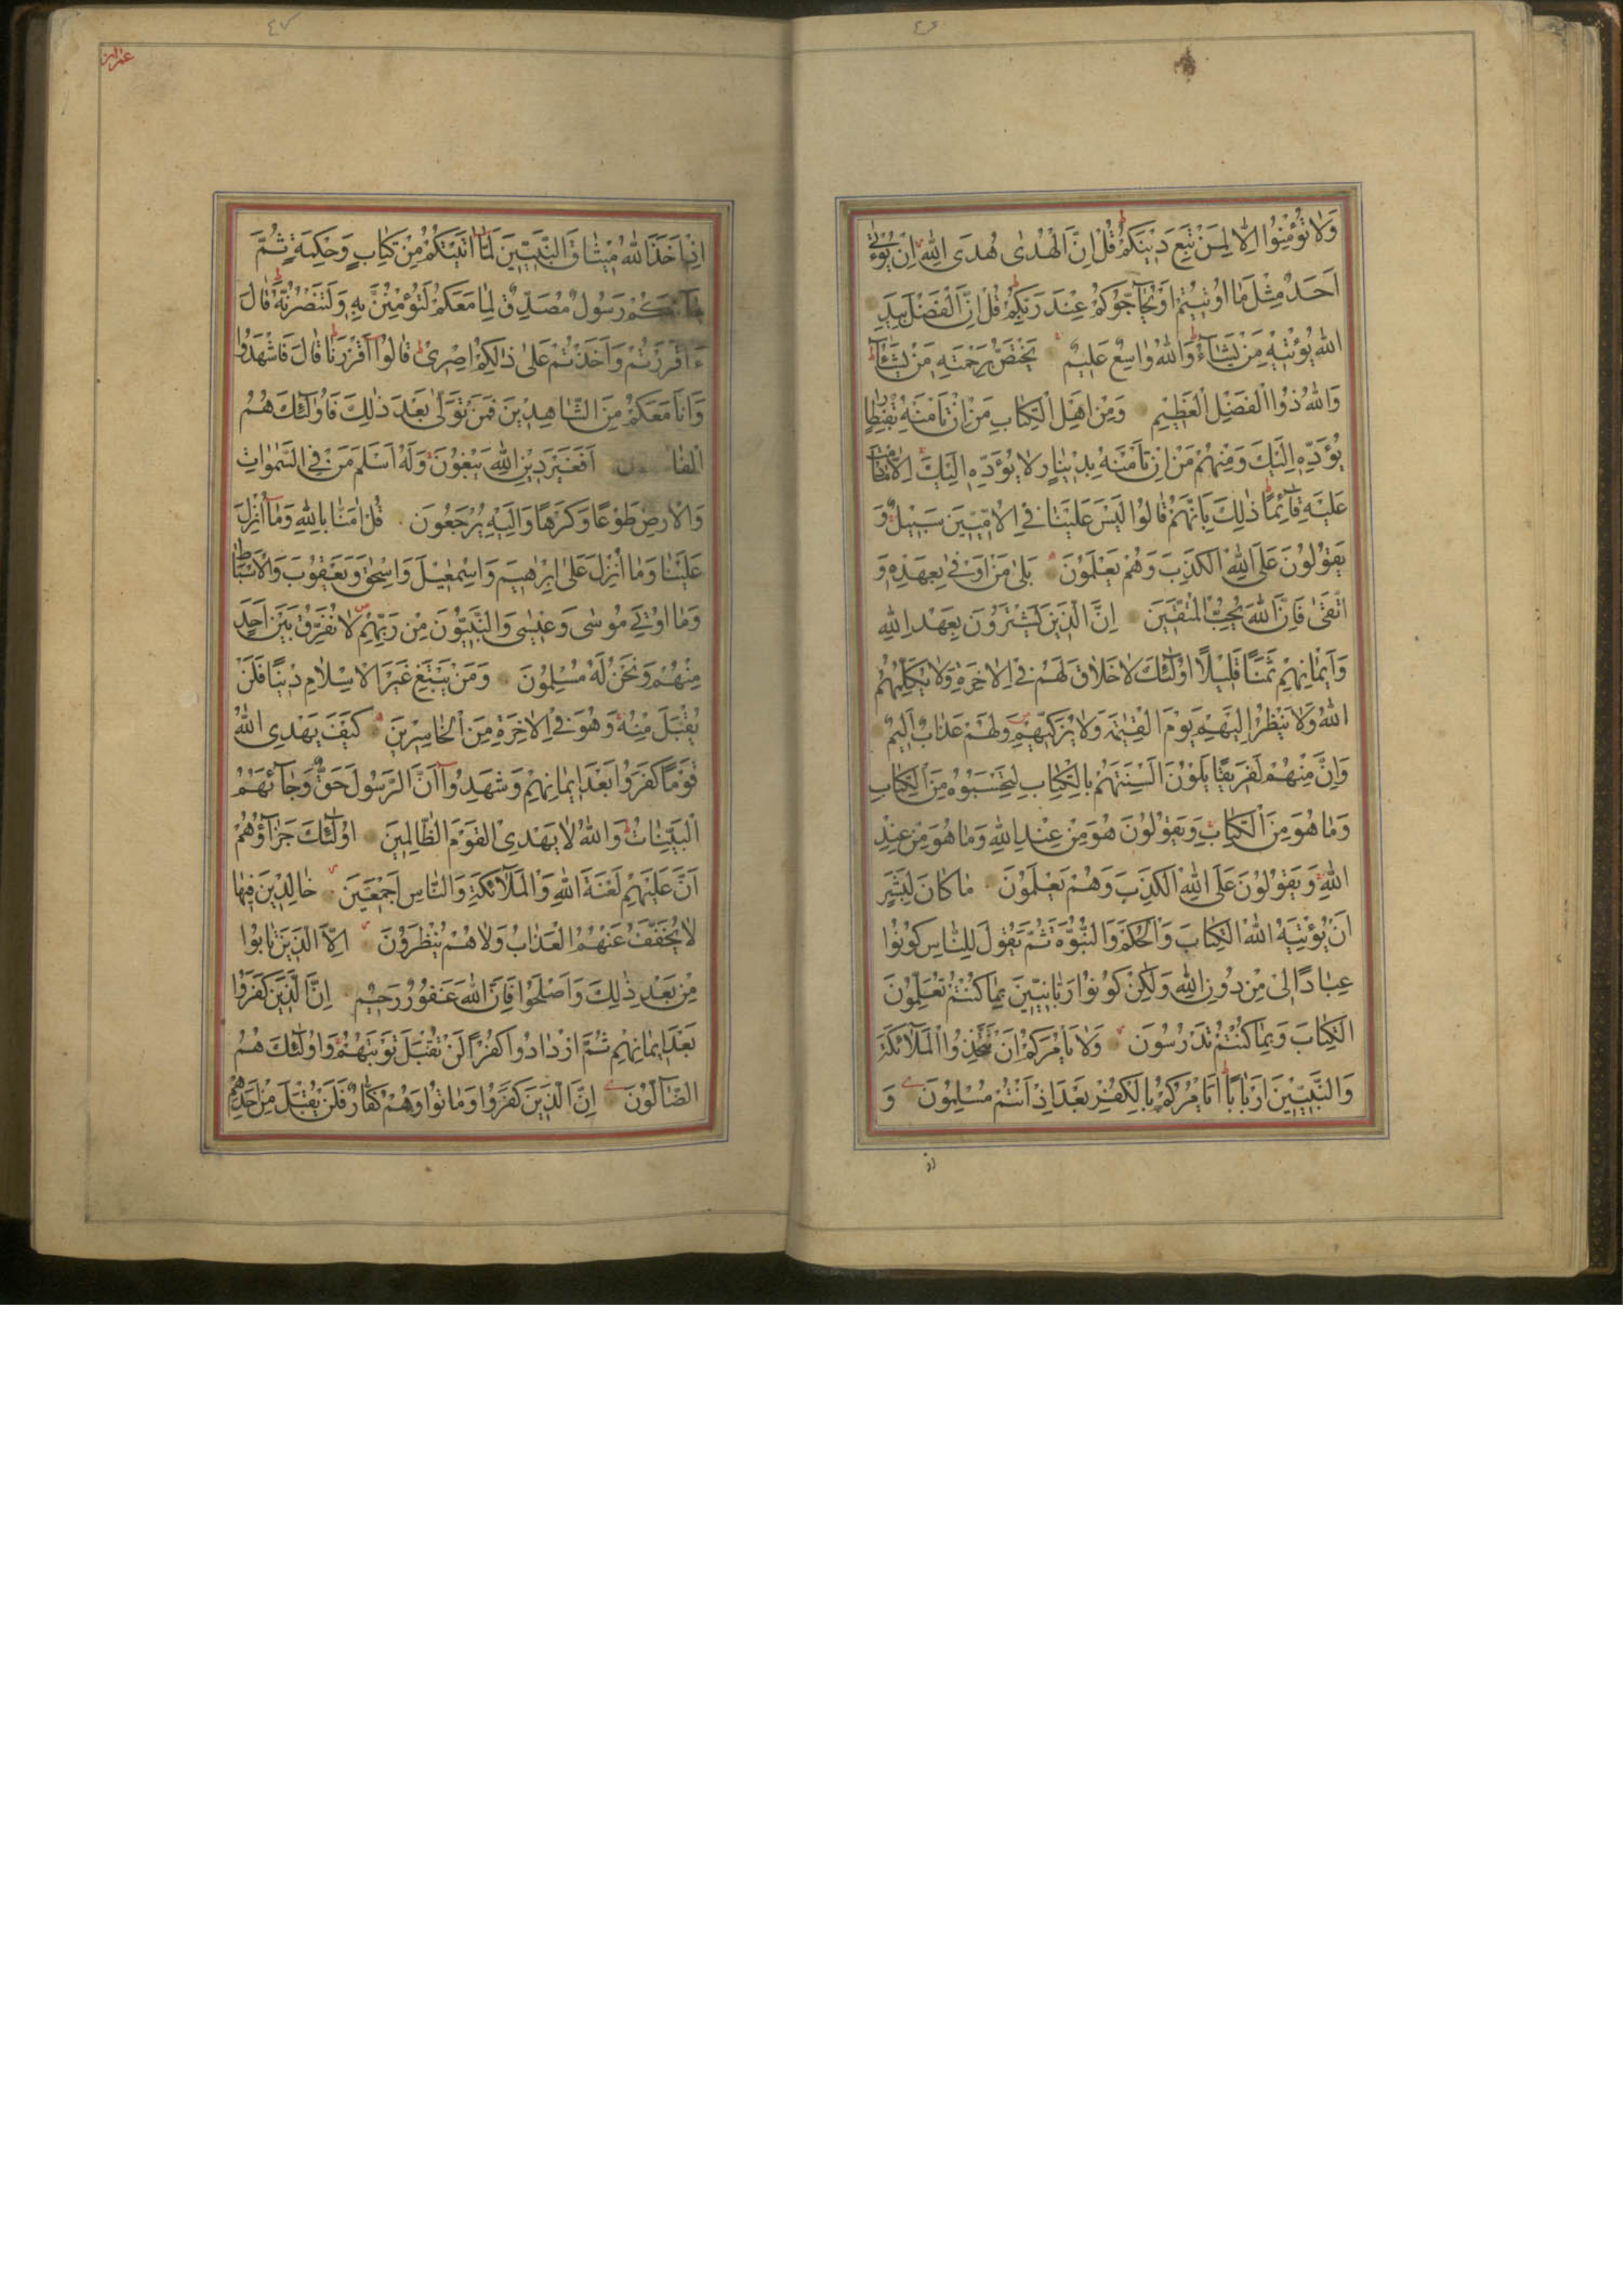 ٤٦
وَلَا تُؤْمِنُوا اِلَّا لِمَنْ تَبِعَ دِينَكُمْ قُلْ اِنَّ الْهُدٰى هُدَى اللّٰهِ اَنْ يُؤْتٰى
اَحَدٌ مِثْلَ مَا اُوتِيتُمْ اَوْ يُحَاجُّوكُمْ عِنْدَ رَبِّكُمْ قُلْ اِنَّ الْفَضْلَ بِيَدِ
اللّٰهِ يُؤْتِيهِ مَنْ يَشَآءُ وَاللّٰهُ وَاسِعٌ عَلِيمٌ يَخْتَصُّ بِرَحْمَتِهِ مَنْ يَشَآءُ
وَاللّٰهُ ذُو الْفَضْلِ الْعَظِيمِ وَمِنْ اَهْلِ الْكِتَابِ مَنْ اِنْ تَأْمَنْهُ بِقِنْطَارٍ
يُؤَدِّهِ اِلَيْكَ وَمِنْهُمْ مَنْ اِنْ تَأْمَنْهُ بِدِينَارٍ لَا يُؤَدِّهِ اِلَيْكَ اِلَّا مَا دُمْتَ
عَلَيْهِ قَآئِمًا ذٰلِكَ بِاَنَّهُمْ قَالُوا لَيْسَ عَلَيْنَا فِي الْاُمِّيِّينَ سَبِيلٌ وَ
يَقُولُونَ عَلَى اللّٰهِ الْكَذِبَ وَهُمْ يَعْلَمُونَ بَلٰى مَنْ اَوْفٰى بِعَهْدِهِ وَ
اتَّقٰى فَاِنَّ اللّٰهَ يُحِبُّ الْمُتَّقِينَ اِنَّ الَّذِينَ يَشْتَرُونَ بِعَهْدِ اللّٰهِ
وَاَيْمَانِهِمْ ثَمَنًا قَلِيلًا اُولٰٓئِكَ لَا خَلَاقَ لَهُمْ فِي الْاٰخِرَةِ وَلَا يُكَلِّمُهُمُ
اللّٰهُ وَلَا يَنْظُرُ اِلَيْهِمْ يَوْمَ الْقِيٰمَةِ وَلَا يُزَكِّيهِمْ وَلَهُمْ عَذَابٌ اَلِيمٌ
وَاِنَّ مِنْهُمْ لَفَرِيقًا يَلْوُنَ اَلْسِنَتَهُمْ بِالْكِتَابِ لِتَحْسَبُوهُ مِنَ الْكِتَابِ
وَمَا هُوَ مِنَ الْكِتَابِ وَيَقُولُونَ هُوَ مِنْ عِنْدِ اللّٰهِ وَمَا هُوَ مِنْ عِنْدِ
اللّٰهِ وَيَقُولُونَ عَلَى اللّٰهِ الْكَذِبَ وَهُمْ يَعْلَمُونَ مَا كَانَ لِبَشَرٍ
اَنْ يُؤْتِيَهُ اللّٰهُ الْكِتَابَ وَالْحُكْمَ وَالنُّبُوَّةَ ثُمَّ يَقُولَ لِلنَّاسِ كُونُوا
عِبَادًا لِي مِنْ دُونِ اللّٰهِ وَلٰكِنْ كُونُوا رَبَّانِيِّينَ بِمَا كُنْتُمْ تُعَلِّمُونَ
الْكِتَابَ وَبِمَا كُنْتُمْ تَدْرُسُونَ وَلَا يَأْمُرَكُمْ اَنْ تَتَّخِذُوا الْمَلَآئِكَةَ
وَالنَّبِيِّينَ اَرْبَابًا اَيَأْمُرُكُمْ بِالْكُفْرِ بَعْدَ اِذْ اَنْتُمْ مُسْلِمُونَ وَ
اذ
٤٧
عمران
اِذْ اَخَذَ اللّٰهُ مِيثَاقَ النَّبِيِّينَ لَمَا اٰتَيْتُكُمْ مِنْ كِتَابٍ وَحِكْمَةٍ ثُمَّ
جَآءَكُمْ رَسُولٌ مُصَدِّقٌ لِمَا مَعَكُمْ لَتُؤْمِنُنَّ بِهِ وَلَتَنْصُرُنَّهُ قَالَ
ءَاَقْرَرْتُمْ وَاَخَذْتُمْ عَلٰى ذٰلِكُمْ اِصْرِي قَالُوا اَقْرَرْنَا قَالَ فَاشْهَدُوا
وَاَنَا مَعَكُمْ مِنَ الشَّاهِدِينَ فَمَنْ تَوَلّٰى بَعْدَ ذٰلِكَ فَاُولٰٓئِكَ هُمُ
الْفَاسِقُونَ اَفَغَيْرَ دِينِ اللّٰهِ يَبْغُونَ وَلَهُ اَسْلَمَ مَنْ فِي السَّمٰوَاتِ
وَالْاَرْضِ طَوْعًا وَكَرْهًا وَاِلَيْهِ يُرْجَعُونَ قُلْ اٰمَنَّا بِاللّٰهِ وَمَا اُنْزِلَ
عَلَيْنَا وَمَا اُنْزِلَ عَلٰى اِبْرٰهِيمَ وَاِسْمٰعِيلَ وَاِسْحٰقَ وَيَعْقُوبَ وَالْاَسْبَاطِ
وَمَا اُوتِيَ مُوسٰى وَعِيسٰى وَالنَّبِيُّونَ مِنْ رَبِّهِمْ لَا نُفَرِّقُ بَيْنَ اَحَدٍ
مِنْهُمْ وَنَحْنُ لَهُ مُسْلِمُونَ وَمَنْ يَبْتَغِ غَيْرَ الْاِسْلَامِ دِينًا فَلَنْ
يُقْبَلَ مِنْهُ وَهُوَ فِي الْاٰخِرَةِ مِنَ الْخَاسِرِينَ كَيْفَ يَهْدِي اللّٰهُ
قَوْمًا كَفَرُوا بَعْدَ اِيمَانِهِمْ وَشَهِدُوا اَنَّ الرَّسُولَ حَقٌّ وَجَآئَهُمُ
الْبَيِّنَاتُ وَاللّٰهُ لَا يَهْدِي الْقَوْمَ الظَّالِمِينَ اُولٰٓئِكَ جَزَآؤُهُمْ
اَنَّ عَلَيْهِمْ لَعْنَةَ اللّٰهِ وَالْمَلَآئِكَةِ وَالنَّاسِ اَجْمَعِينَ خَالِدِينَ فِيهَا
لَا يُخَفَّفُ عَنْهُمُ الْعَذَابُ وَلَا هُمْ يُنْظَرُونَ اِلَّا الَّذِينَ تَابُوا
مِنْ بَعْدِ ذٰلِكَ وَاَصْلَحُوا فَاِنَّ اللّٰهَ غَفُورٌ رَحِيمٌ اِنَّ الَّذِينَ كَفَرُوا
بَعْدَ اِيمَانِهِمْ ثُمَّ ازْدَادُوا كُفْرًا لَنْ تُقْبَلَ تَوْبَتُهُمْ وَاُولٰٓئِكَ هُمُ
الضَّآلُّونَ اِنَّ الَّذِينَ كَفَرُوا وَمَاتُوا وَهُمْ كُفَّارٌ فَلَنْ يُقْبَلَ مِنْ اَحَدِهِمْ